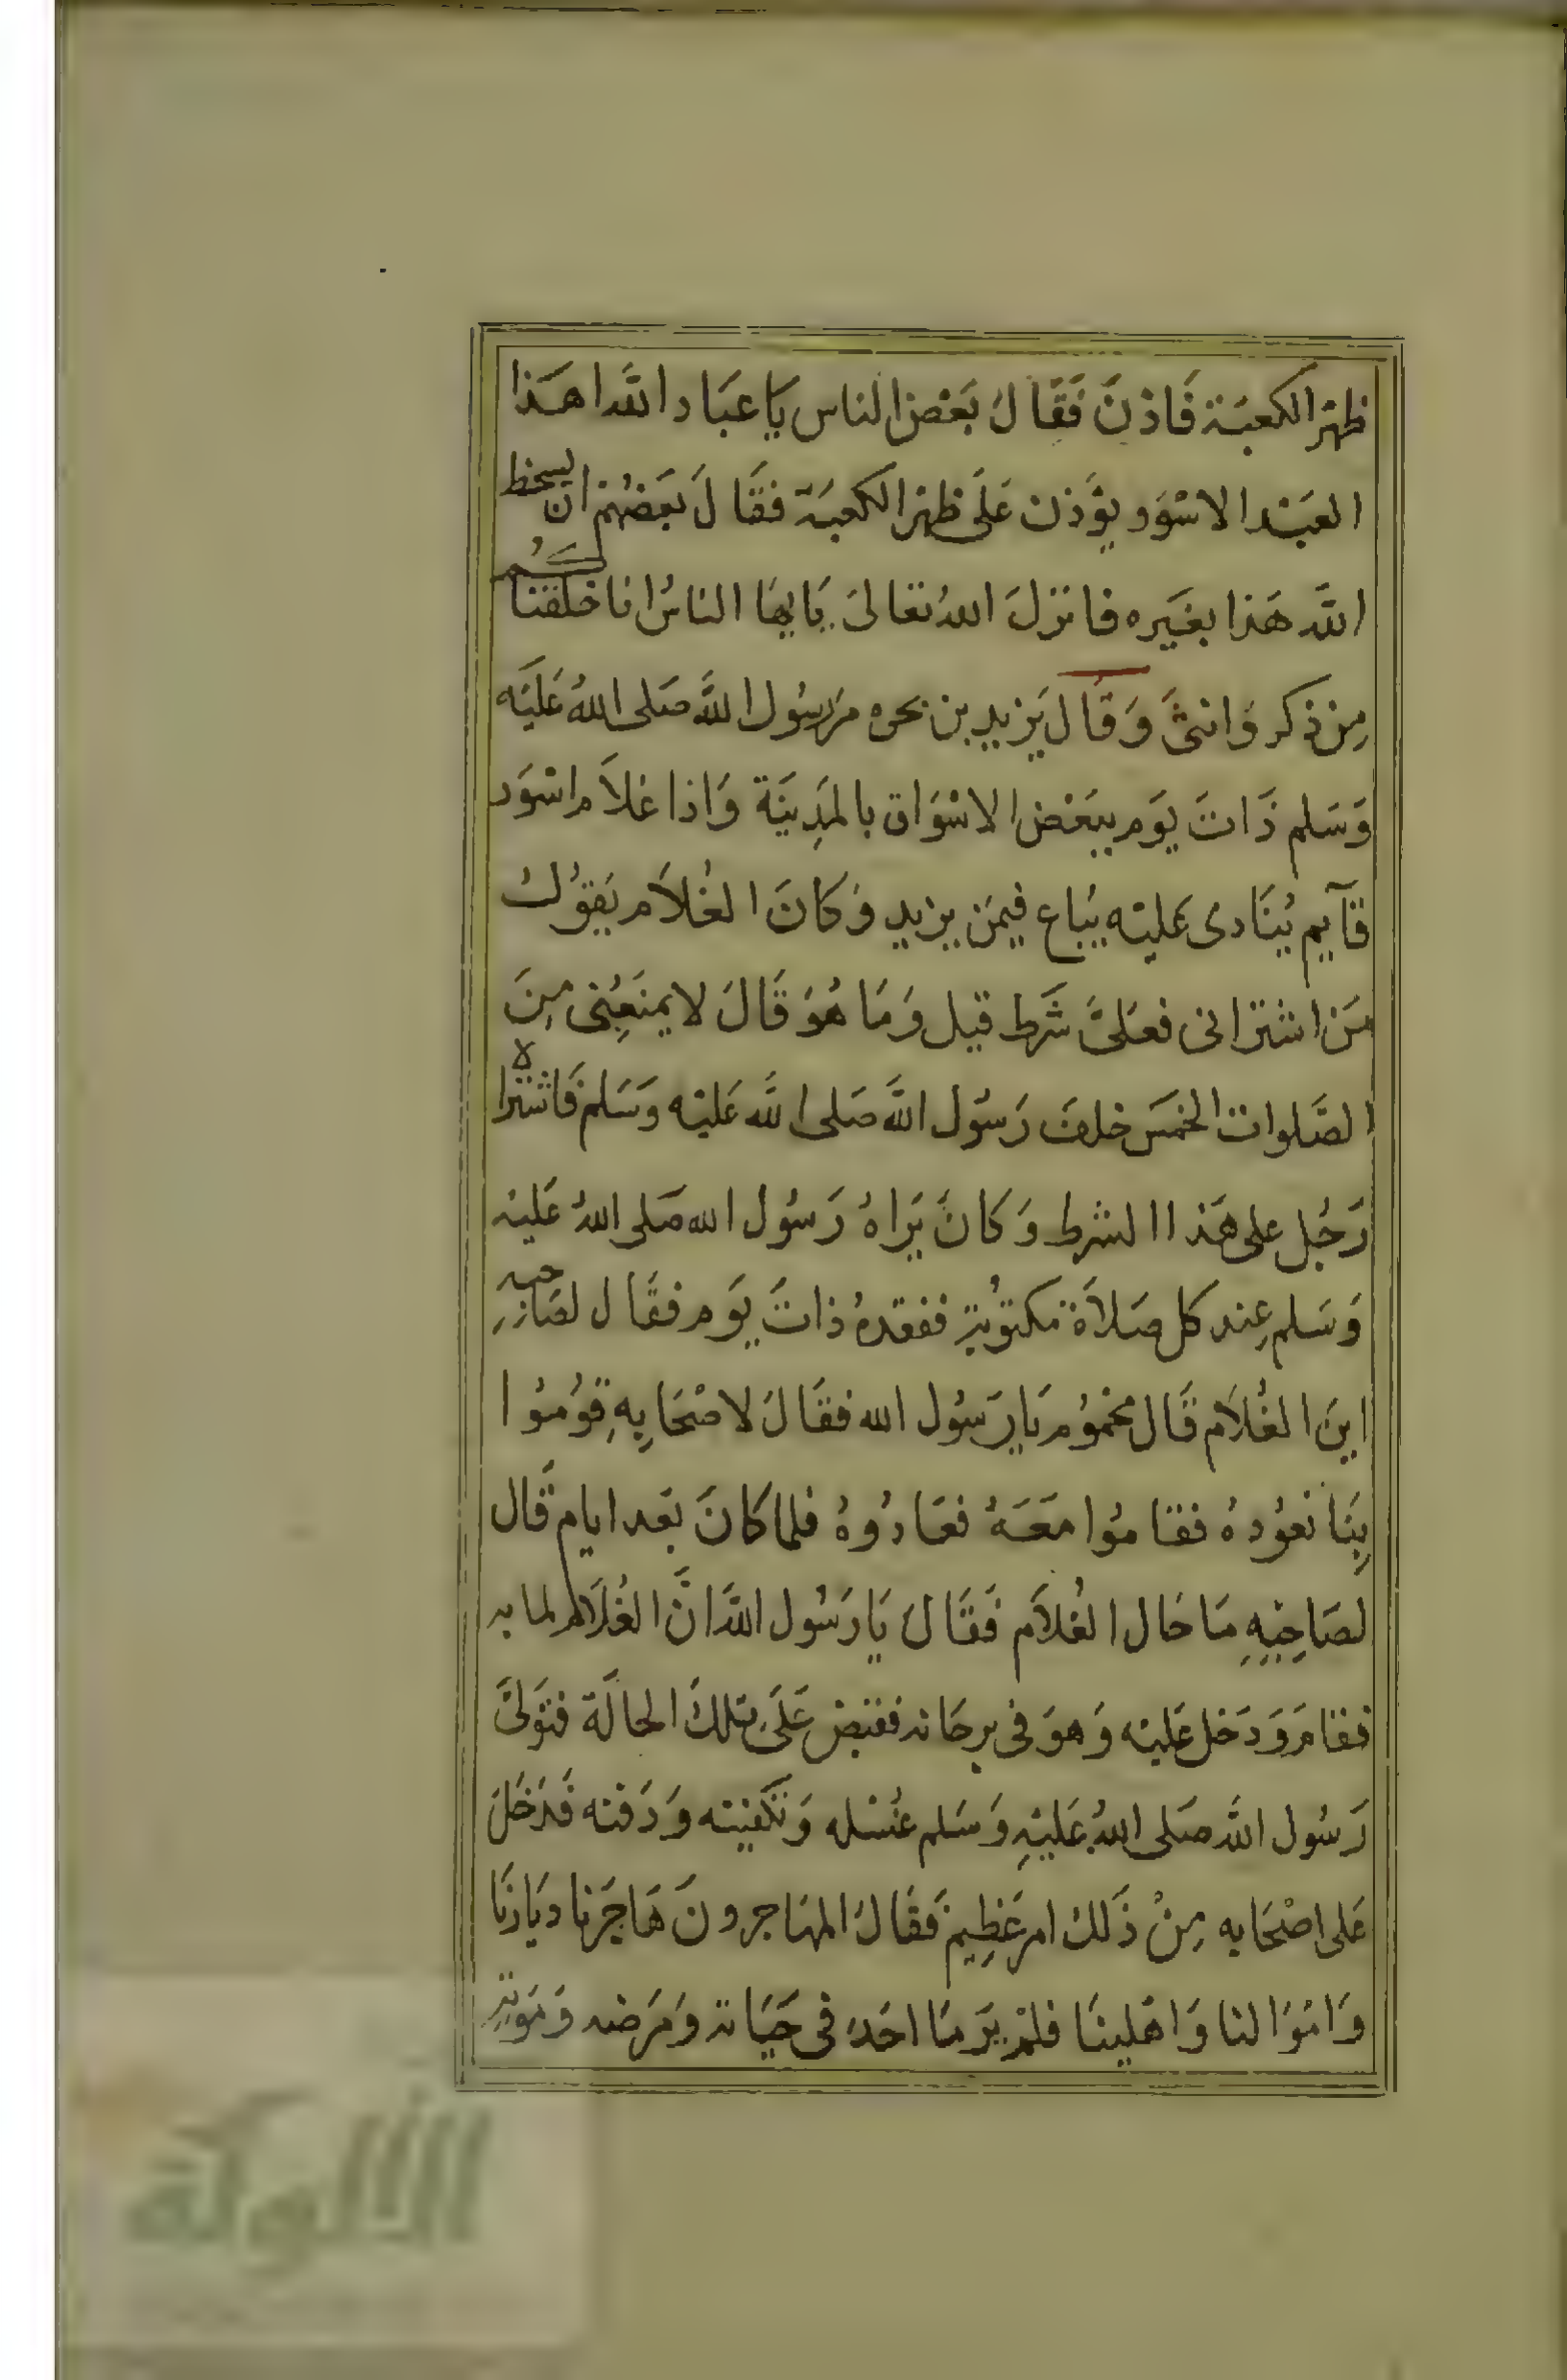 ظهر الكعبة فَاذنَ فَقَالَ بَعْض الناس يَا عبَاد اللَّه اهَذا
العَبْد الاسْوَد يؤَذن عَلَى ظهر الكعبَة فقَالَ بَعضهُم ان يسخط
اللَّه هَذا يغَيره فانزلَ اللهُ تعَالىَ يَايها الناسُ انا خلقناكُم
مِن ذكر وَانثىَ وَقَال يَزيد بن بحره مَر رسُول اللَّه صَلى اللهُ عَليَه
وَسَلم ذَاتَ يَوم ببَعْض الاسْوَاق بالمدِينَة وَاذا غلاَم اسْوَد
قَآيم يُنَادى عَليْه يُبَاع فيمَن يزيد وَكانَ الغُلاَم يَقوُلُ
مَن اشتراني فعَلىَّ شَرط قيل وَمَا هُوَ قَالَ لا يمنَعُنِى مِنَ
الصَّلوات الخمسَ خلفَ رَسوُل اللَّه صَلى اللَّه عَليْه وَسَلم فَاشتراه
رَجُل على هَذا الشرط وَكانَ يَراهُ رَسُول الله صَلى اللهُ عَليْه
وَسَلم عِند كل صَلاَة مَكتوُبة ففقدهُ ذاتَ يَوم فقَال لصَاحبه
اينَ الغُلاَم قَال محَموُم يَا رَسوُل الله فقَالَ لاصْحَابِهِ قوُمُوا
بِنَا نعوُدهُ فقامُوا مَعَهُ فعَادُوهُ فلما كانَ بَعد ايام قَال
لصَاحِبِهِ مَا حَال الغُلاَم فَقَالَ يَا رَسُول اللَّه انَّ الغُلاَم لما به
فقامَ وَدَخل عَليْه وَهوَ فى برحَانه فقبض عَلَى تلكَ الحالَة فتوَلىَّ
رَسُول اللَّه صَلى اللهُ عَليْهِ وَسَلم غُسْله وَتكفينه وَدَفنه فَدَخَلَ
عَلى اصْحَابه مِنْ ذَلكَ امر عَظِيم فَقَالَ المهَاجرونَ هَاجَرنا ديَارنَا
وَامْوَالنا وَاهْلينَا فلمْ يَر مَا احَد فى حَيَاته وَمَرَضه وَمَوتِهِ
الألوكة